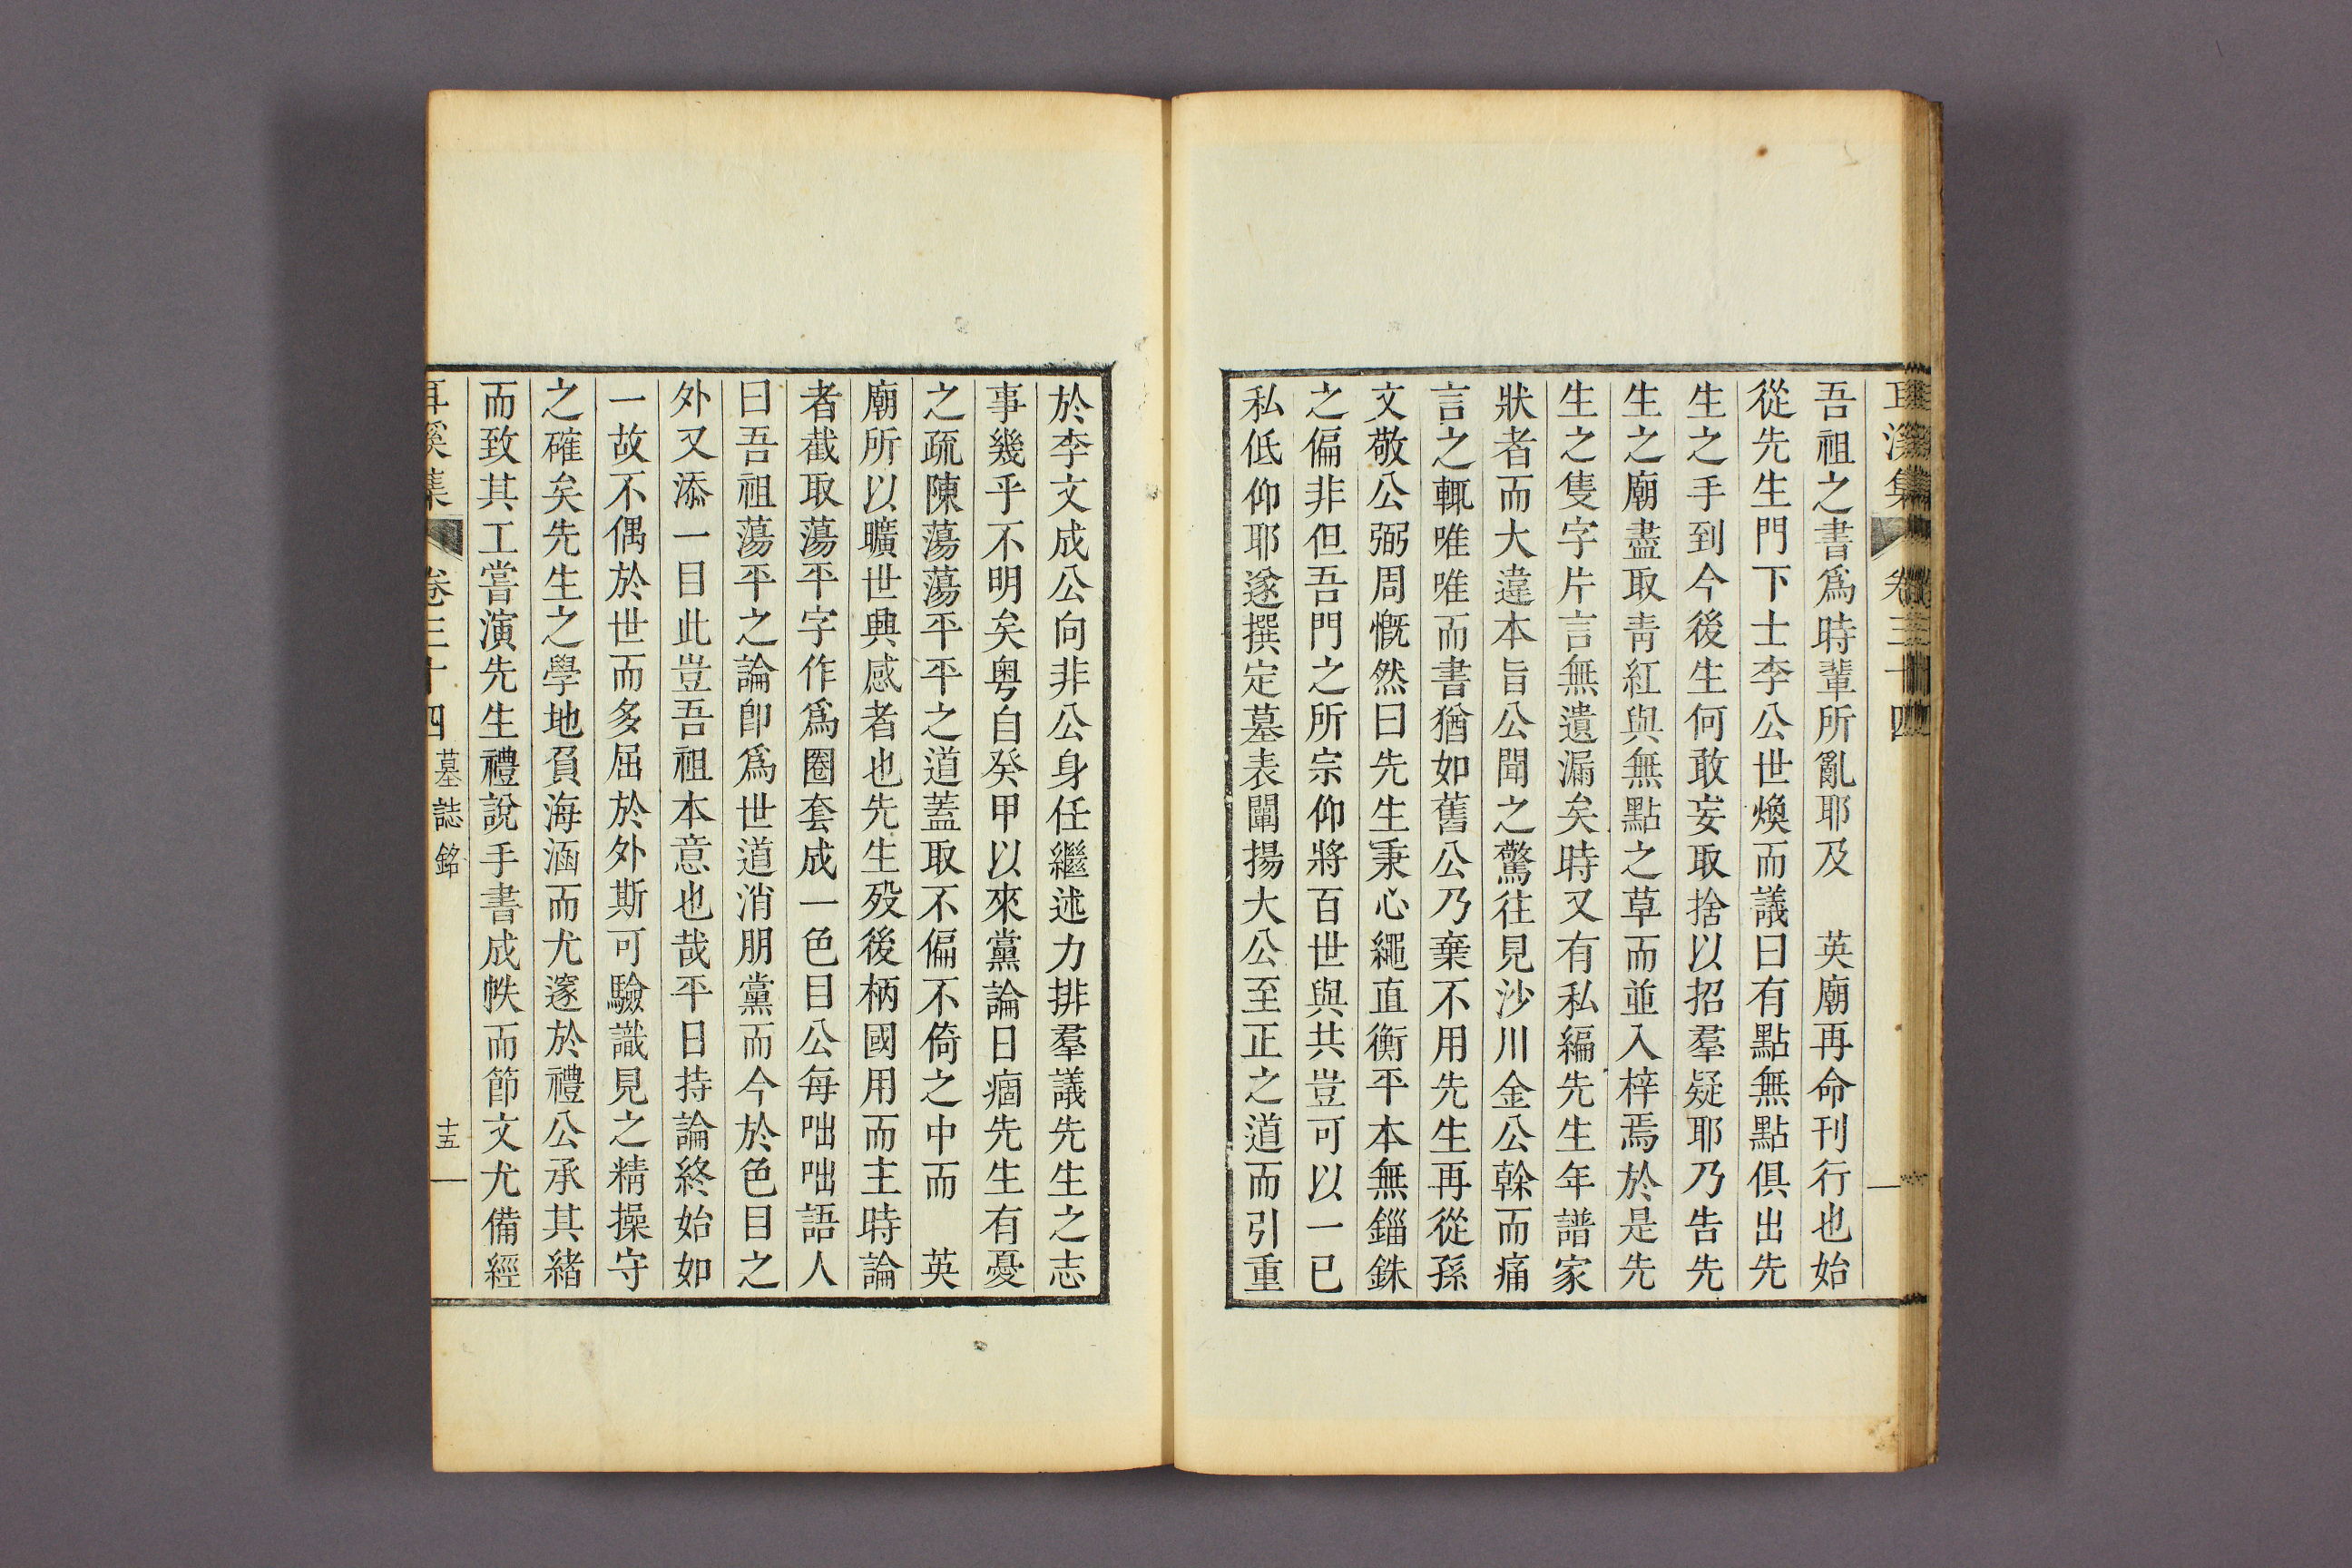 耳溪集 卷三十四
吾祖之書爲時輩所亂耶及　英廟再命刊行也始
從先生門下士李公世煥而議曰有點無點俱出先
生之手到今後生何敢妄取捨以招羣疑耶乃告先
生之廟盡取靑紅與無點之草而並入梓焉於是先
生之隻字片言無遺漏矣時又有私編先生年譜家
狀者而大違本旨公聞之驚往見沙川金公榦而痛
言之輒唯唯而書猶如舊公乃棄不用先生再從孫
文敬公弼周慨然曰先生秉心繩直衡平本無錙銖
之偏非但吾門之所宗仰將百世與共豈可以一已
私低仰耶遂撰定墓表闡揚大公至正之道而引重
於李文成公向非公身任繼述力排羣議先生之志
事幾乎不明矣粤自癸甲以來黨論日痼先生有憂
之疏陳蕩蕩平平之道蓋取不偏不倚之中而　英
廟所以曠世興感者也先生歿後柄國用而主時論
者截取蕩平字作爲圈套成一色目公每咄咄語人
曰吾祖蕩平之論卽爲世道消朋黨而今於色目之
外又添一目此豈吾祖本意也哉平日持論終始如
一故不偶於世而多屈於外斯可驗識見之精操守
之確矣先生之學地負海涵而尤邃於禮公承其緖
而致其工嘗演先生禮說手書成帙而節文尤備經
耳溪集 卷三十四 墓誌銘 十五